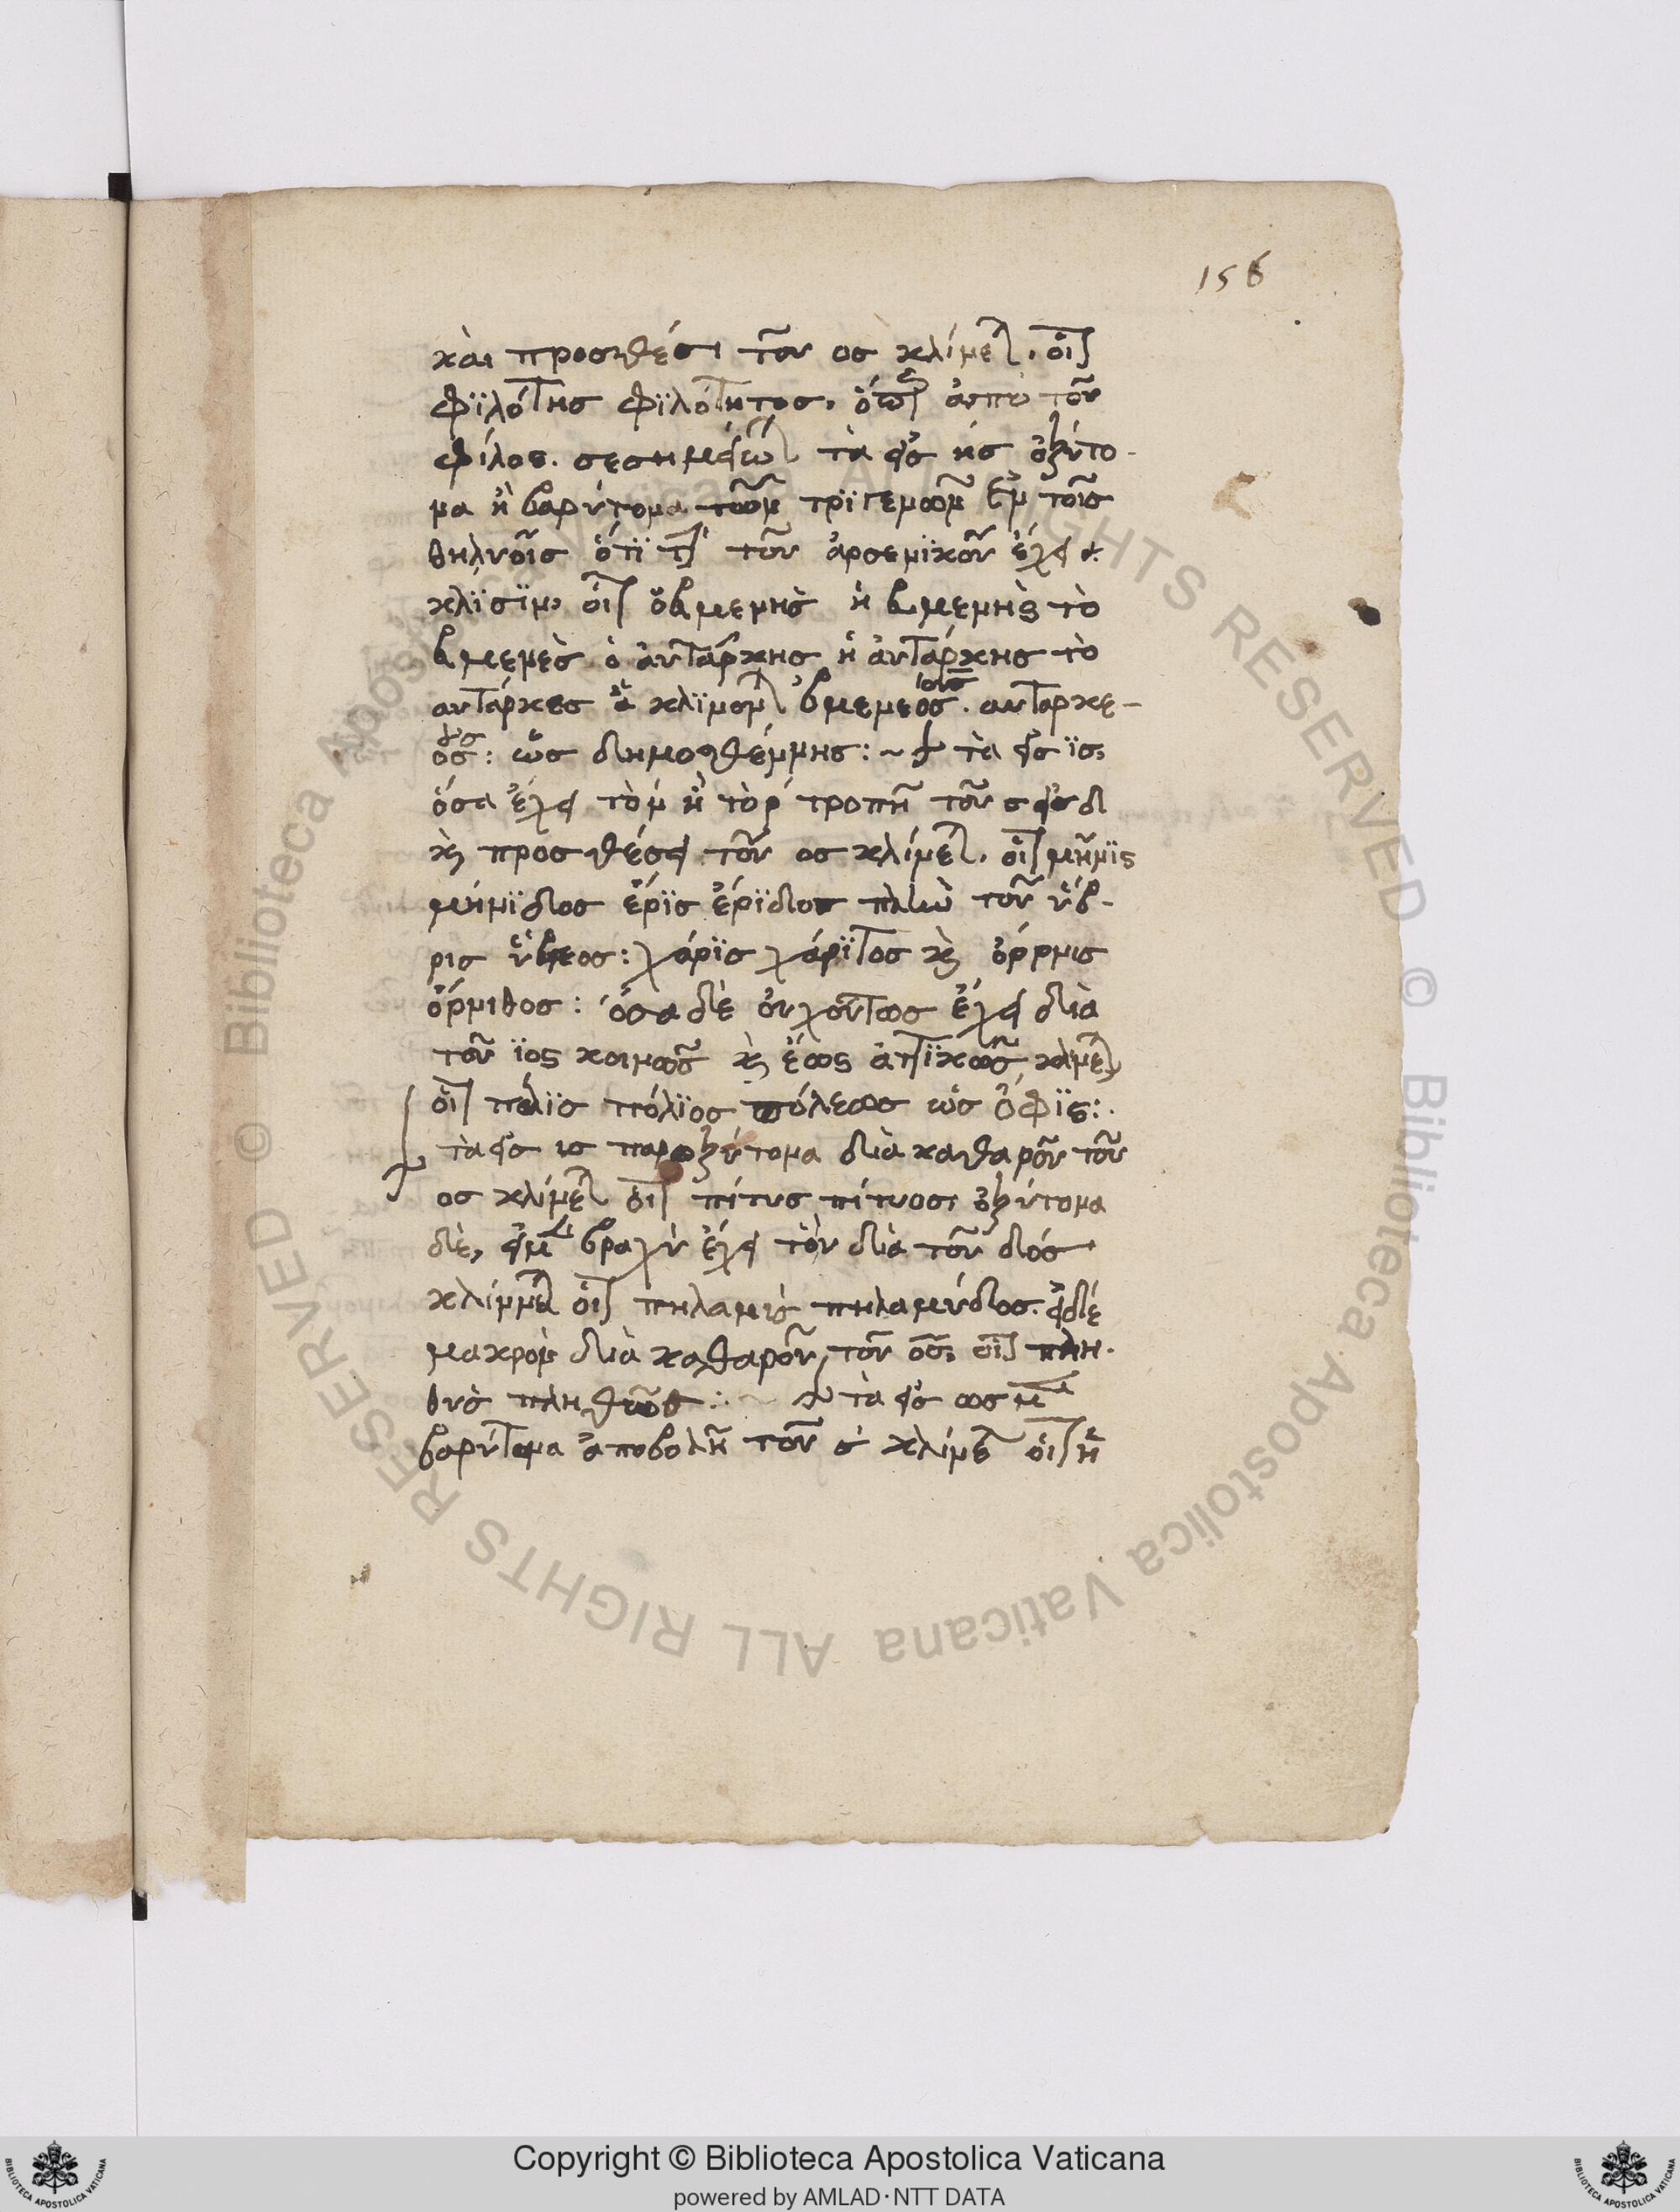 156
και προσθέσει τοῦ ος κλίνετ. οἷ
φϊλότης φϊλότητος, ἀπὸ τοῦ
φίλος. τὰ εἰς ης ὀξύτο-
να ἢ βαρύτονα τῶν τριγενῶν ἐν τοῖς
θηλυοῖς ὅτϊ τ τοῦ ἀρσενϊκοῦ ἔχει
κλϊσϊν, οἷ ὁ εὐμενὴς ἡ εὐμενὴς τὸ
εὐμενὲς ὁ αὐτάρκης ἡ αὐτάρκης τὸ
αυτάρκες κλϊνον εὐμενεος. αυταρκε-
ος: ὡς δημοσθέννης: ~ τὰ εἰς ϊς,
ὅσα ἔχει τὸ ν ἢ τὸ ρ τροπῆ τοῦ σ εἰς δ
κ προσθέσει τοῦ ος κλίνετ. οἷ μῆνϊς
μήνϊδος ἔρϊς ἔρϊδος πλὴν τοῦ ὕβ-
ρις ὕβρεος: χάρϊς χάρϊτος κ ὄρρνις
ὄρνιθος: ὅσα δὲ οὐχ οὕτως ἔχει διὰ
τοῦ ϊος κοινῶς κ ἔως ἀττϊκῶς κλίνετ
οἷ πόλϊς πόλϊος πόλεως ὡς ὄφϊς:.
τὰ εἰς υς παροξύτονα διὰ καθαροῦ τοῦ
ος κλίνετ οἷ πίτυς πίτυος, ὀξύτονα
δὲ, εἰ μὲν βραχὺ ἔχει τὸ υ διὰ τοῦ δος
κλίννετ οἷ πηλαμὺς πηλαμύδος. εἰ δὲ
μακρὸν διὰ καθαροῦ τοῦ ος, οἷ πλη-
θὺς πληθῦος:. ~ τὰ εἰς ως μ
βαρύτονα ἀποβολῆ τοῦ σ κλίνετ οἷ ἡ
Copyright © Biblioteca Apostolica Vaticana
powered by AMLAD·NTT DATA